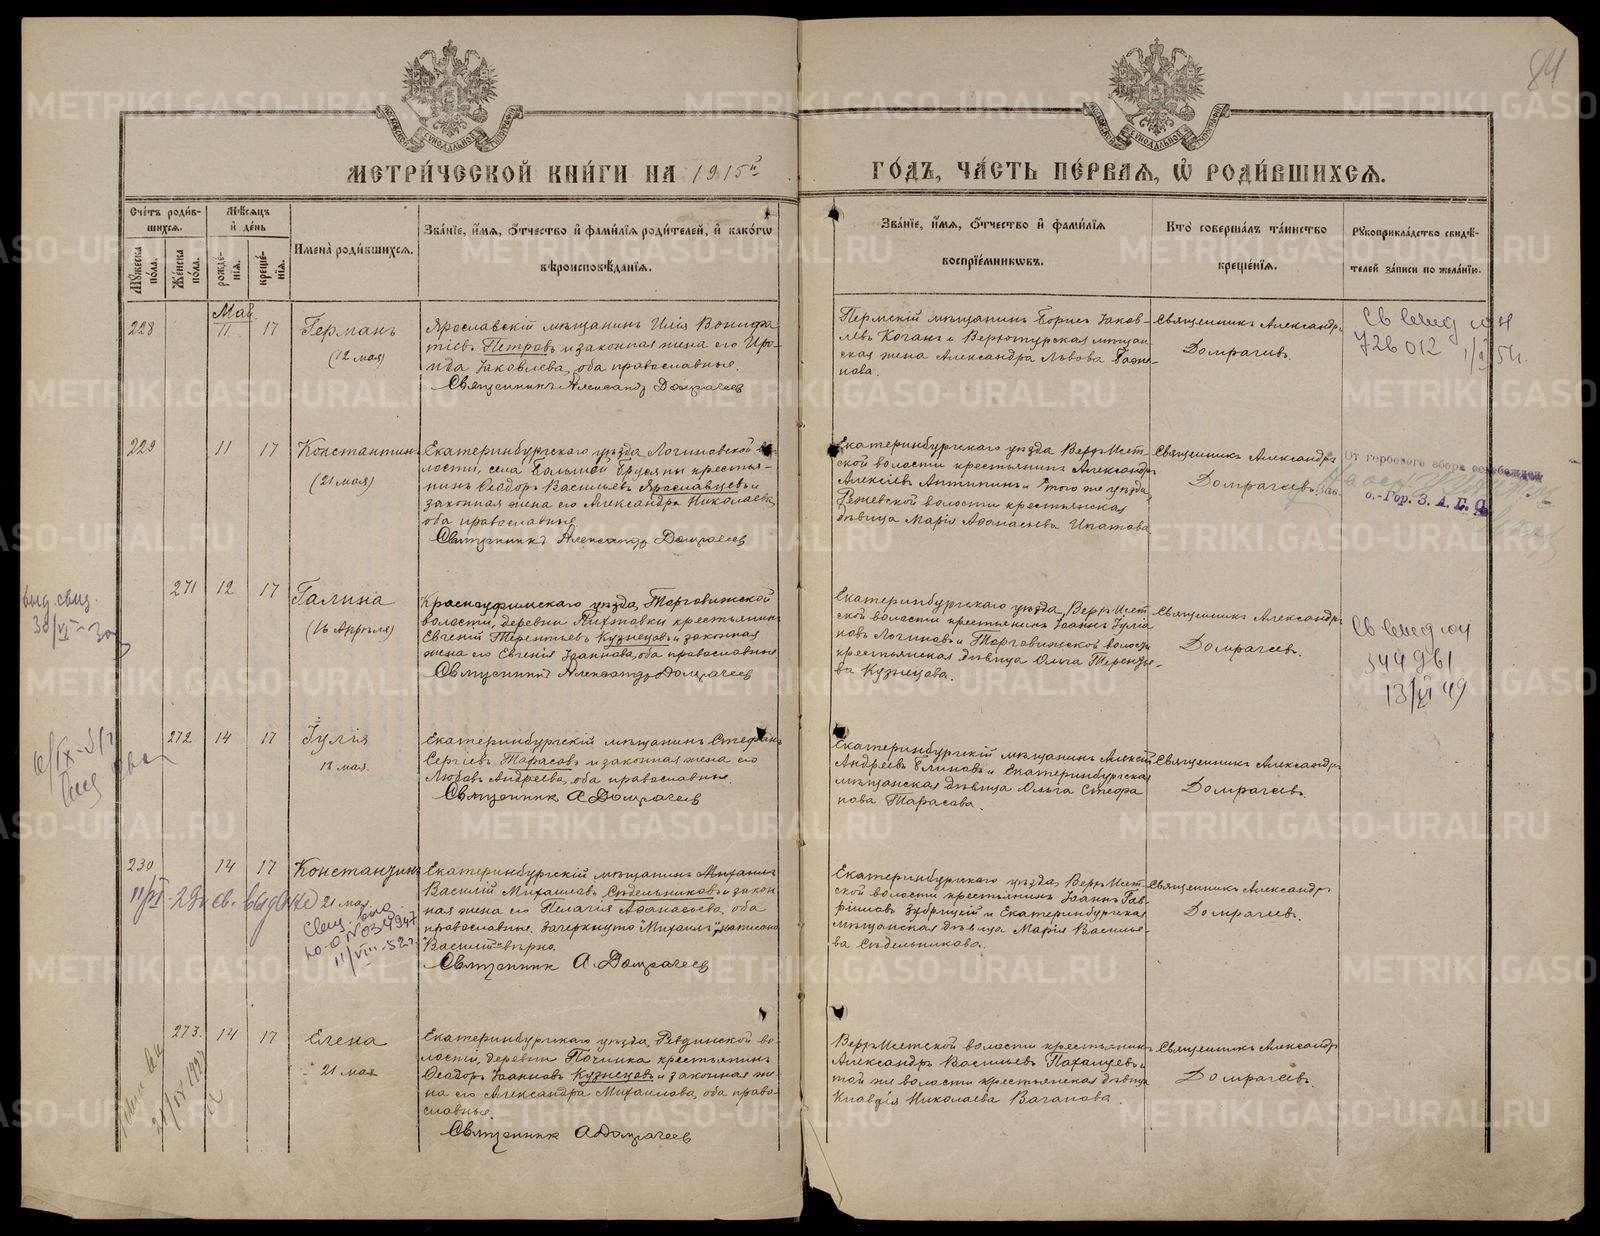 84
МЕТРИ́ЧЕСКОЙ КНИ́ГИ НА 1915й
ГО́ДЪ, ЧА́СТЬ ПЕ́РВАЯ, Ѡ҆ РОДИ́ВШИХСЯ.
Сче́тъ роди́в-
шихся.
Му́жеска по́ла.
Же́нска по́ла.
Мѣ́сяцъ
и҆ де́нь
рожде́-
нія.
креще́-
нія.
Имена̀ роди́вшихся.
Зва́ніе, и҆́мя, ѻ҆́тчество и҆ фами́лія роди́телей, и҆ како́гѡ
вѣроисповѣ́данія.
Зва́ніе, и҆́мя, ѻ҆́тчество и҆ фами́лія
воспріе́мниковъ.
Кто̀ соверша́лъ та́инство
креще́нія.
Рукоприкла́дство свидѣ́-
телей за́писи по жела́нію.
Май
228
11
17
Германъ
(12 мая)
Ярославскій мѣщанинъ Илія Вонифа
тіевъ Петровъ и законная жена его Иро-
ида Іаковлева, оба православные.
Священникъ Александръ Домрачеевъ
Пермскій мѣщанинъ Борисъ Іаков-
левъ Коганъ и Верхотурская мѣщан
ская жена Александра Львова
нова.
Священникъ Александръ
Домрачеевъ.
726012
229
11
17
Константинъ
(21 мая)
Екатеринбургскаго уѣзда Логиновской во
лости, села Большой Брусяны крестья-
нинъ Ѳеодоръ Васильевъ Ярославцевъ и
законная жена его Александра Николаева
оба православные
Священникъ Александръ Домрачеевъ
Екатеринбургскаго уѣзда Верхъ-Исет-
ской волости крестьянинъ Александръ
Алексіевъ Антипинъ и того же уѣзда,
Режевской волости крестьянская
дѣвица Марія Аѳанасьева Ипатова.
Священникъ Александръ
Домрачеевъ.
От гербового сбора освобожден
Зав.
о.-Гор. З. А. Г. С.
выд. свид.
30/VI-30
271
12
17
Галина
(16 Апрѣля)
Красноуфимскаго уѣзда, Торговижской
волости, деревни Пихтовки крестьянинъ
Евгеній Терентьевъ Кузнецовъ и законная
жена его Евгенія Іоаннова, оба православные
Священникъ Александръ Домрачеевъ
Екатеринбургскаго уѣзда, Верхъ-Исет-
ской волости крестьянинъ Іоаннъ Іуліа
новъ Логиновъ и Торговижской волости
крестьянская дѣвица Ольга Терентье-
ва Кузнецова.
Священникъ Александръ
Домрачеевъ.
344961
13/VI 49
272
14
17
Іулія
18 мая.
Екатеринбургскій мѣщанинъ Стефанъ
Сергіевъ Тарасовъ и законная жена его
Любовь Андреева, оба православные.
Священник А. Домрачеев
Екатеринбургскій мѣщанинъ Алексій
Андреевъ Блиновъ и Екатеринбургская
мѣщанская дѣвица Ольга Стефа
нова Тарасова.
Священникъ Александръ
Домрачеевъ.
230
14
17
Константинъ
21 мая.
Екатеринбургскій мѣщанинъ Михаилъ
Василій Михаиловъ Сѣдельниковъ и закон
ная жена его Пелагія Аѳанасьева, оба
православные. Зачеркнуто "Михаилъ" написано
"Василій" вѣрно.
Священник А. Домрачеев
Екатеринбургскаго уѣзда, Верхъ-Исет-
ской волости крестьянинъ Іоаннъ Гав-
ріиловъ Зубрицкій и Екатеринбургская
мѣщанская дѣвица Марія Василье-
ва Сѣдельникова.
Священникъ Александръ
Домрачеевъ.
11/VIII-52г.
273.
14
17
Елена
21 мая
Екатеринбургскаго уѣзда, Ревдинской во
лости, деревни Починка крестьянинъ
Ѳеодоръ Іоанновъ Кузнецовъ и законная же
на его Александра Михаилова, оба право-
славные.
Священник А. Домрачеев
Верхъ-Исетской волости крестьянинъ
Александръ Васильевъ и
той же волости крестьянская дѣвица
Клавдія Николаева Ваганова.
Священникъ Александръ
Домрачеевъ.
METRIKI.GASO-URAL.RU